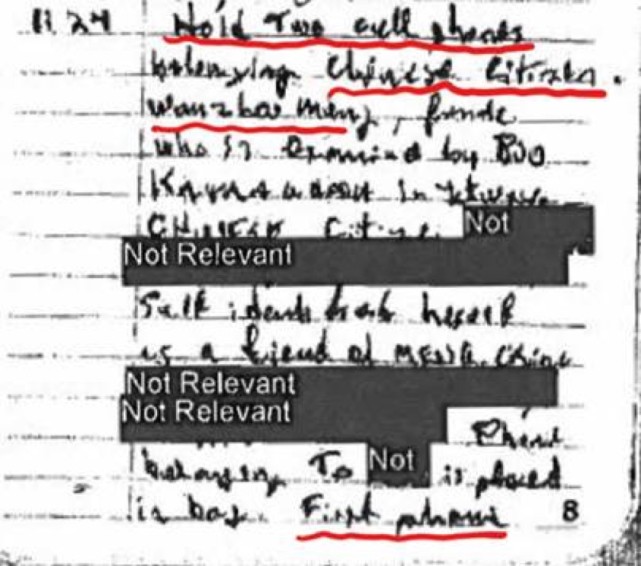 11:24 Hold Two cell phones
belonging Chinese Citizen.
Wanzhou Meng, female
who is examined by BSO
in
Chinese Citizen. Not
Not Relevant
Self identifies herself
is a friend of
Not Relevant
Not Relevant
Phone
belonging To Not is placed
in bag. First phone 8